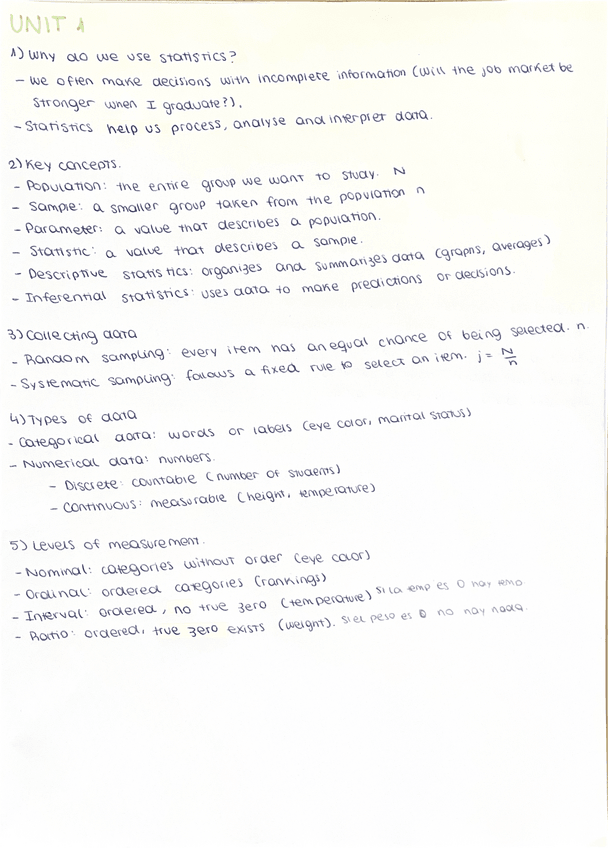 UNIT 1
1) Why do we use statistics?
- we often make decisions with incomplete information (will the job market be
stronger when I graduate?).
- Statistics help us process, analyse and interpret data.
2) Key concepts.
- Population: the entire group we want to study. N
- Sample: a smaller group taken from the population n
- Parameter: a value that describes a population.
- Statistic: a value that describes a sample.
- Descriptive statistics: organizes and summarizes data (graphs, averages)
- Inferential statistics: uses data to make predictions or decisions.
3) Collecting data
- Random sampling: every item has an equal chance of being selected. n.
- Systematic sampling: follows a fixed rule to select an item. j = N/n
4) Types of data
- Categorical data: words or labels (eye color, marital status)
- Numerical data: numbers.
- Discrete: countable (number of students)
- Continuous: measurable (height, temperature)
5) Levels of measurement.
- Nominal: categories without order (eye color)
- Ordinal: ordered categories (rankings)
- Interval: ordered, no true zero (temperature) si la temp es 0 hay temp
- Ratio: ordered, true zero exists (weight). Si el peso es 0 no hay nada.